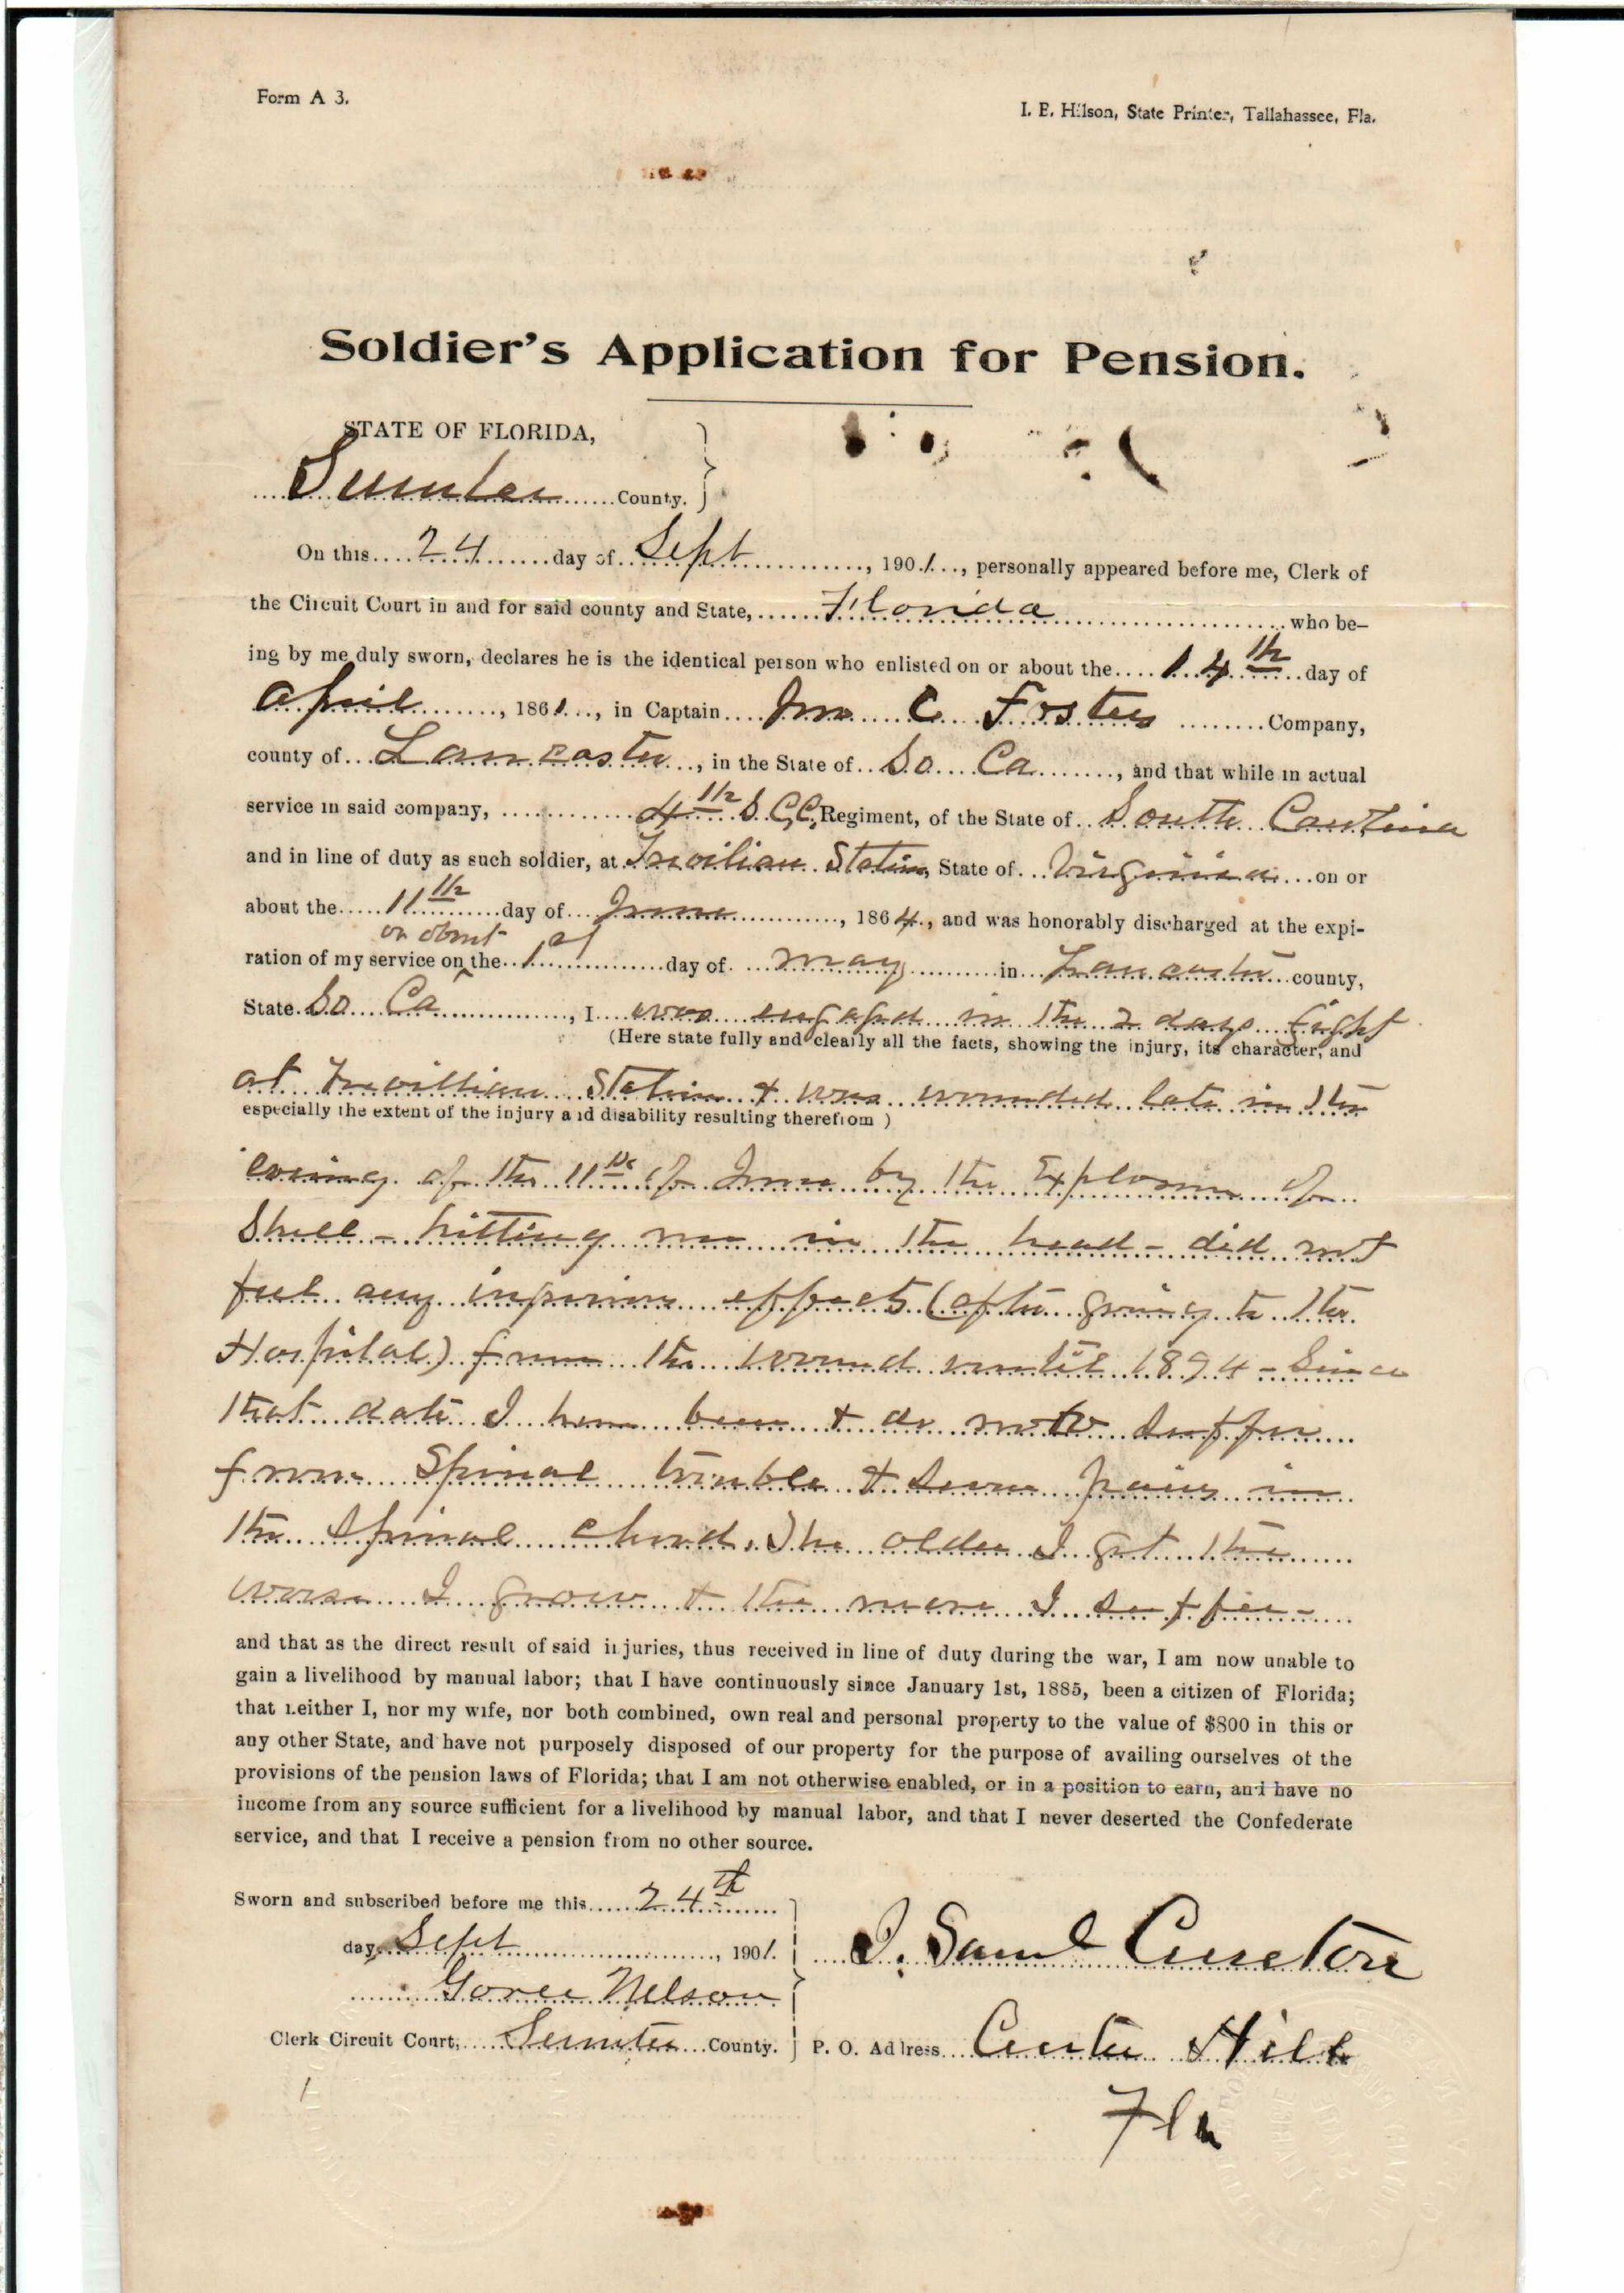 Form A 3.
I. B. Hilson, State Printer, Tallahassee, Fla.
Soldier's Application for Pension.
STATE OF FLORIDA,
Sumter County.
On this 24 day of Sept, 1901, personally appeared before me, Clerk of
the Circuit Court in and for said county and State, Florida who be-
ing by me duly sworn, declares he is the identical person who enlisted on or about the 14th day of
April, 1861, in Captain Jno C Fosters Company,
county of Lancaster, in the State of So Ca, and that while in actual
service in said company, 4th S.C.C. Regiment, of the State of South Carolina
and in line of duty as such soldier, at Trevilian Station, State of Virginia on or
about the 11th day of June, 1864, and was honorably discharged at the expi-
or about
ration of my service on the 1st day of may in Lancaster county,
State So Ca, I was engaged in the 2 days fight
(Here state fully and clearly all the facts, showing the injury, its character, and
at Trevillian Station & was wounded late in the
especially the extent of the injury and disability resulting therefrom )
evening of the 11th of June by the Explosion of
Shell - hitting me in the head - did not
feel any injurious effects (after going to the
Hospital) from the wound until 1894 - Since
that date I have been & do now suffer
from Spinal trouble & severe pains in
the Spinal chord. The older I get the
worse I grow & the more I suffer -
and that as the direct result of said injuries, thus received in line of duty during the war, I am now unable to
gain a livelihood by manual labor; that I have continuously since January 1st, 1885, been a citizen of Florida;
that neither I, nor my wife, nor both combined, own real and personal property to the value of $800 in this or
any other State, and have not purposely disposed of our property for the purpose of availing ourselves of the
provisions of the pension laws of Florida; that I am not otherwise enabled, or in a position to earn, and have no
income from any source sufficient for a livelihood by manual labor, and that I never deserted the Confederate
service, and that I receive a pension from no other source.
Sworn and subscribed before me this 24th
day Sept, 1901.
J. Saml Cureton
Goree Nelson
Clerk Circuit Court, Sumter County.
P. O. Address Center Hill
Fla